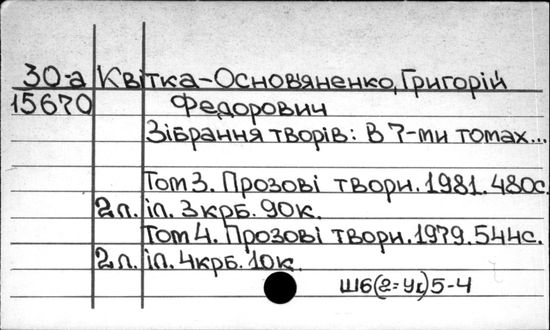 30-а Квітка-Основ'яненко, Григорій
15670 Федорович
Зібрання творів: В 7-ми томах...
Том 3. Прозові твори. 1981. 480с.
2 л. іл. 3 крб. 90к.
Том 4. Прозові твори. 1979. 544с.
2 л. іл. 4 крб. 10к.
Ш6(2=Ук)5-4